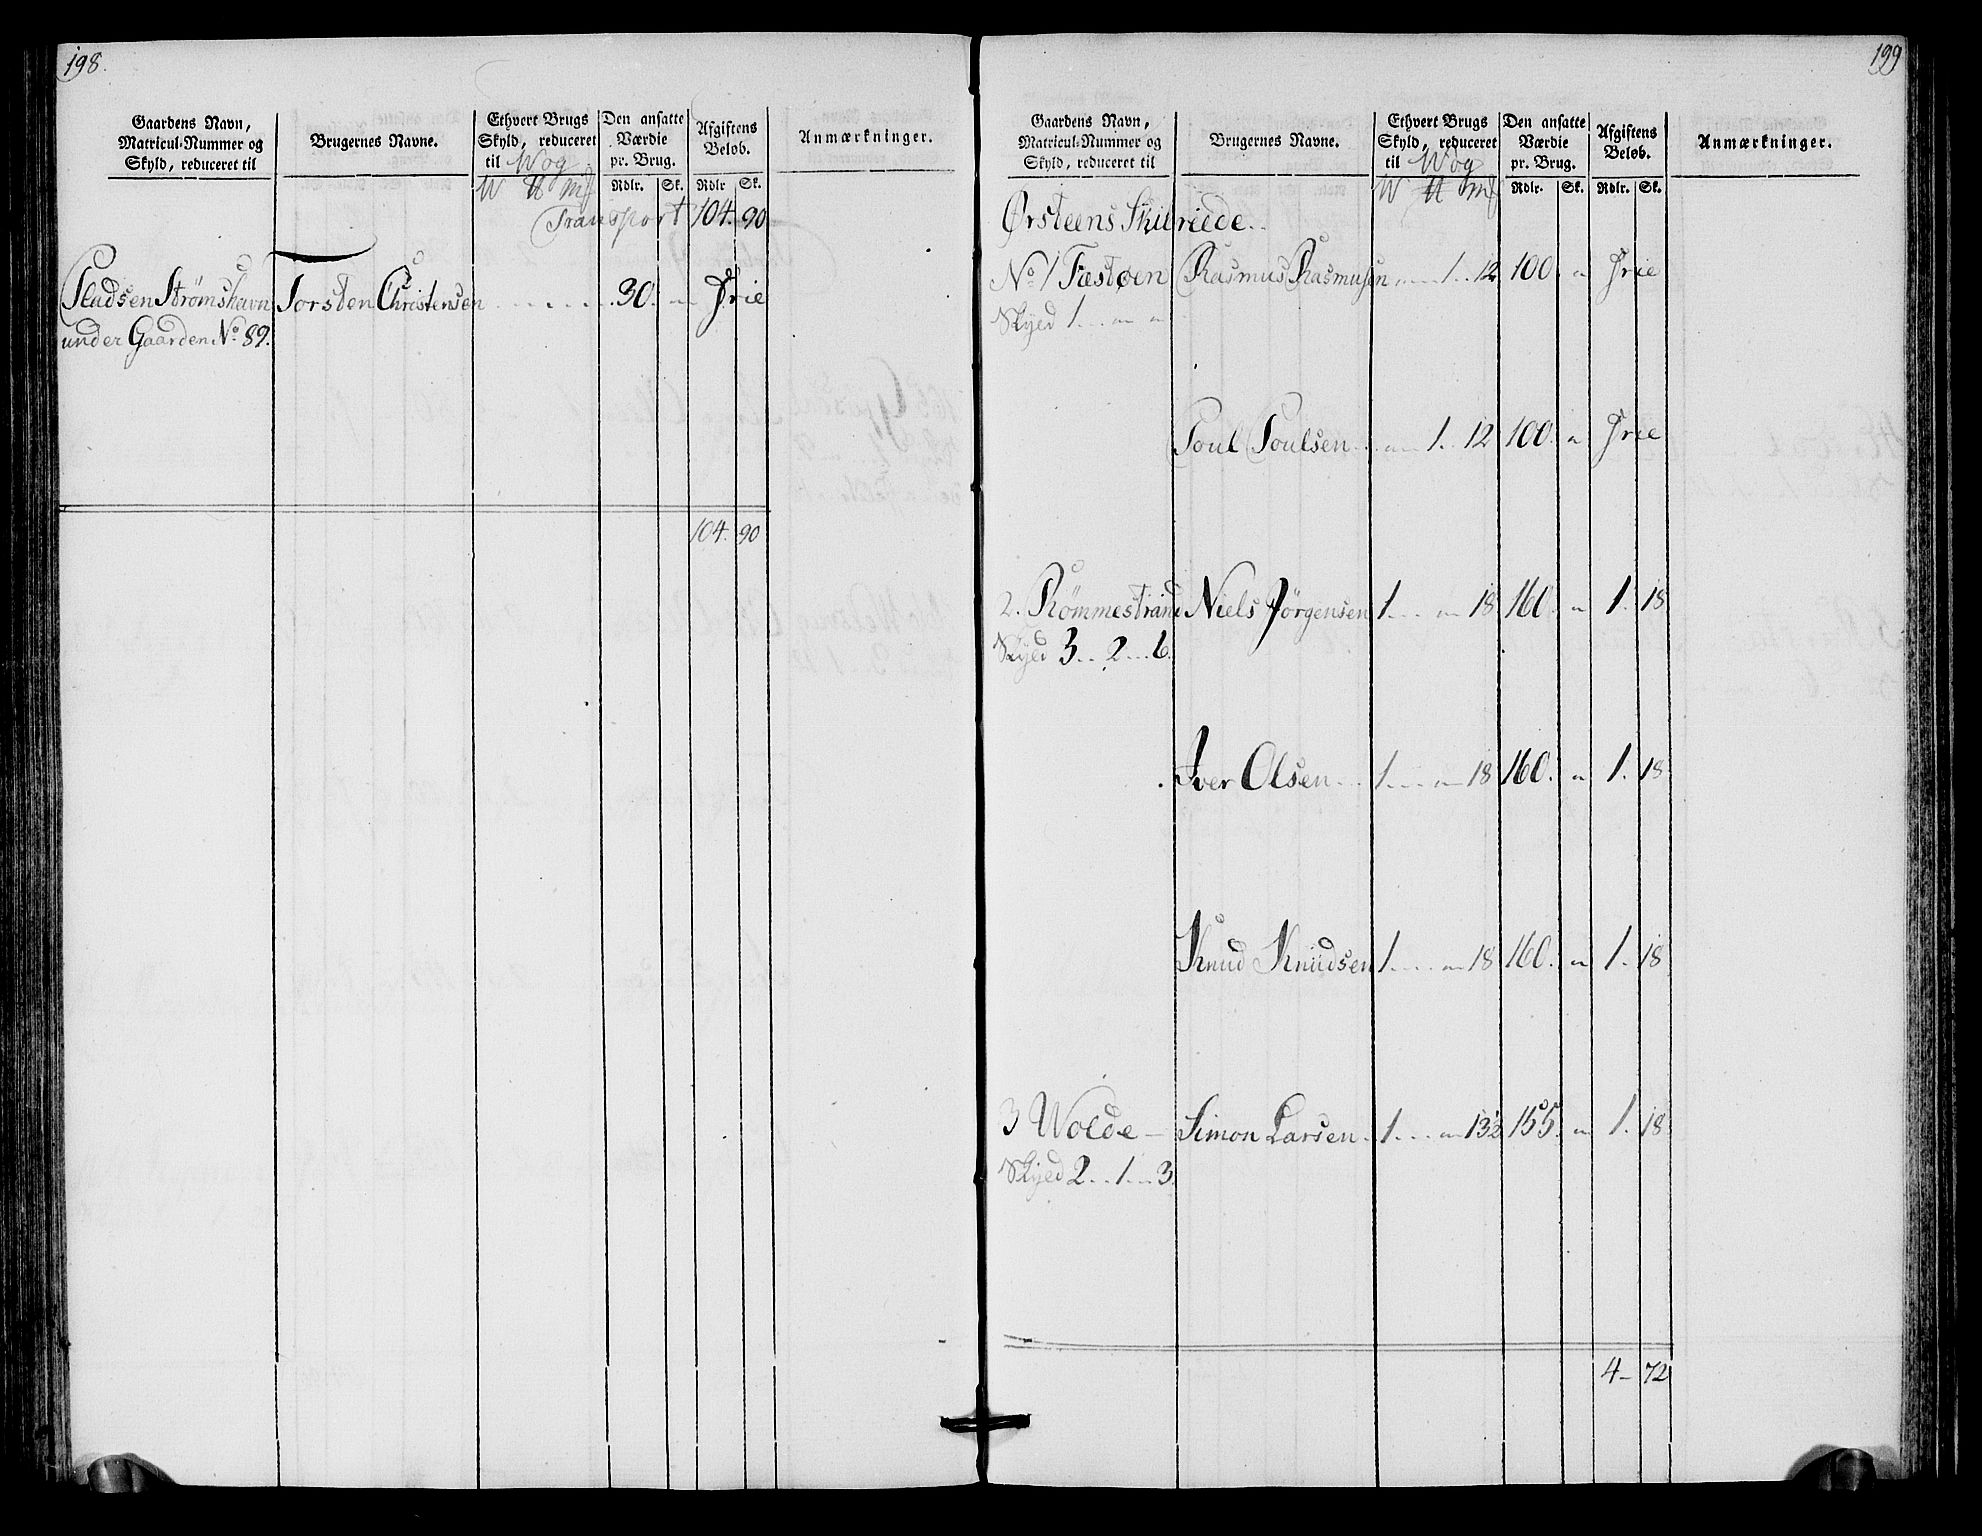 198.
Gaardens Navn, Matricul-Nummer og Skyld, reduceret til
Brugernes Navne.
Ethvert Brugs Skyld, reduceret til Wog
W ℔ mk
Den ansatte Værdie pr. Brug.
Rdlr. Sk.
Afgiftens Beløb.
Rdlr Sk.
Anmærkninger.
Transport 104. 90
Pladsen Strømshavn Torsten Christensen 30. " Frie
under Gaarden No 89.
104. 90
199
Gaardens Navn, Matricul-Nummer og Skyld, reduceret til
Brugernes Navne.
Ethvert Brugs Skyld, reduceret til Wog
W ℔ mk
Den ansatte Værdie pr. Brug.
Rdlr. Sk.
Afgiftens Beløb.
Rdlr. Sk.
Anmærkninger.
Ørsteens Skibriede.
No 1 Fæstøen Rasmus Rasmusen " 1. 12 100. " Frie
Skyld 1. " "
Poul Poulsen " 1. 12 100. " Frie
2. Rømmestrand Niels Jørgensen 1. " 18 160. " 1. 18
Skyld 3. 2. 6.
Iver Olsen 1. " 18 160. " 1. 18
Knud Knudsen 1. " 18 160. " 1. 18
3 Wolde Simon Larsen 1. " 13½ 155. " 1. 18
Skyld 2. 1. 3.
4 72